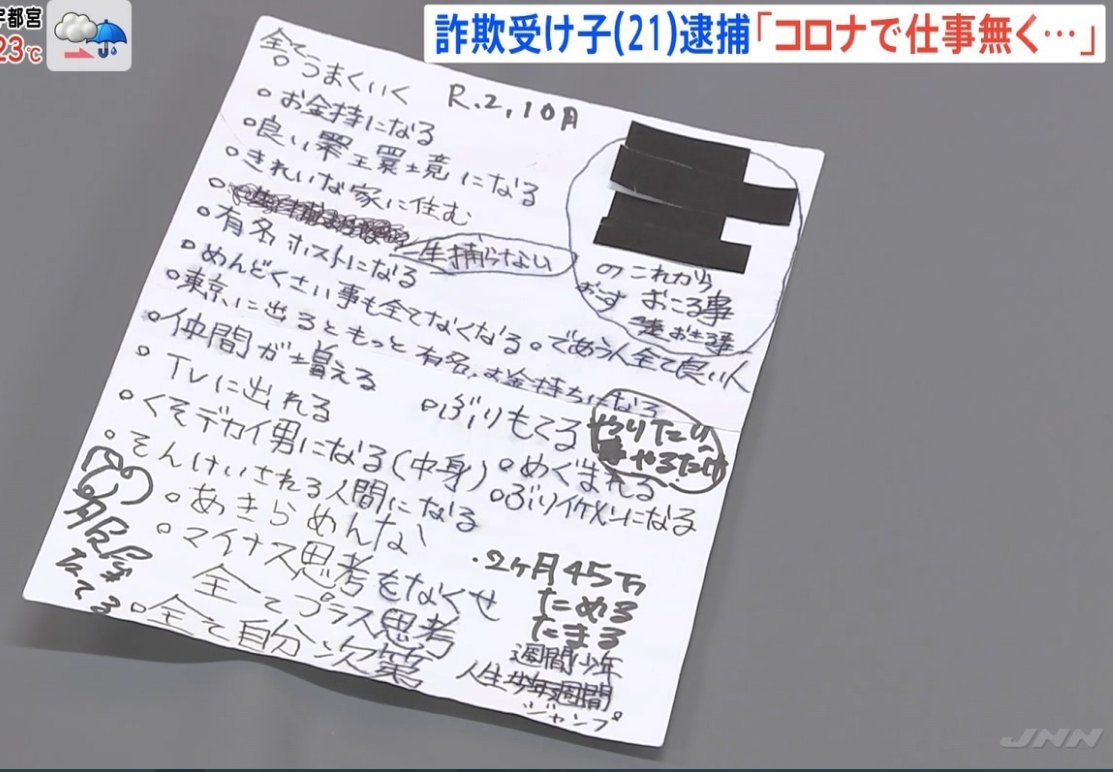 宇都宮
23℃
詐欺受け子(21)逮捕「コロナで仕事無く…」
全て
。うまくいく R.2,10月
。お金持になる
。良い環境になる
。きれいな家に住む
一生捕らない
。有名ホストになる
めんどくさい事も全てなくなる。であう人全て良い人
。東京に出るともっと有名、お金持ちになる
。仲間が増える
。TVに出れる
。ぶりもてる
。くそデカイ男になる(中身)。めぐまれる
。そんけいされる人間になる
。ぶりイケメンになる
。あきらめんな
。マイナス思考をなくせ
全てプラス思考
。全て自分次第
のこれから
おこす おこる事
やりたい
事やるだけ
.2ヶ月45万
ためる
たまる
週間少年
人生
ジャンプ
たてる
JNN